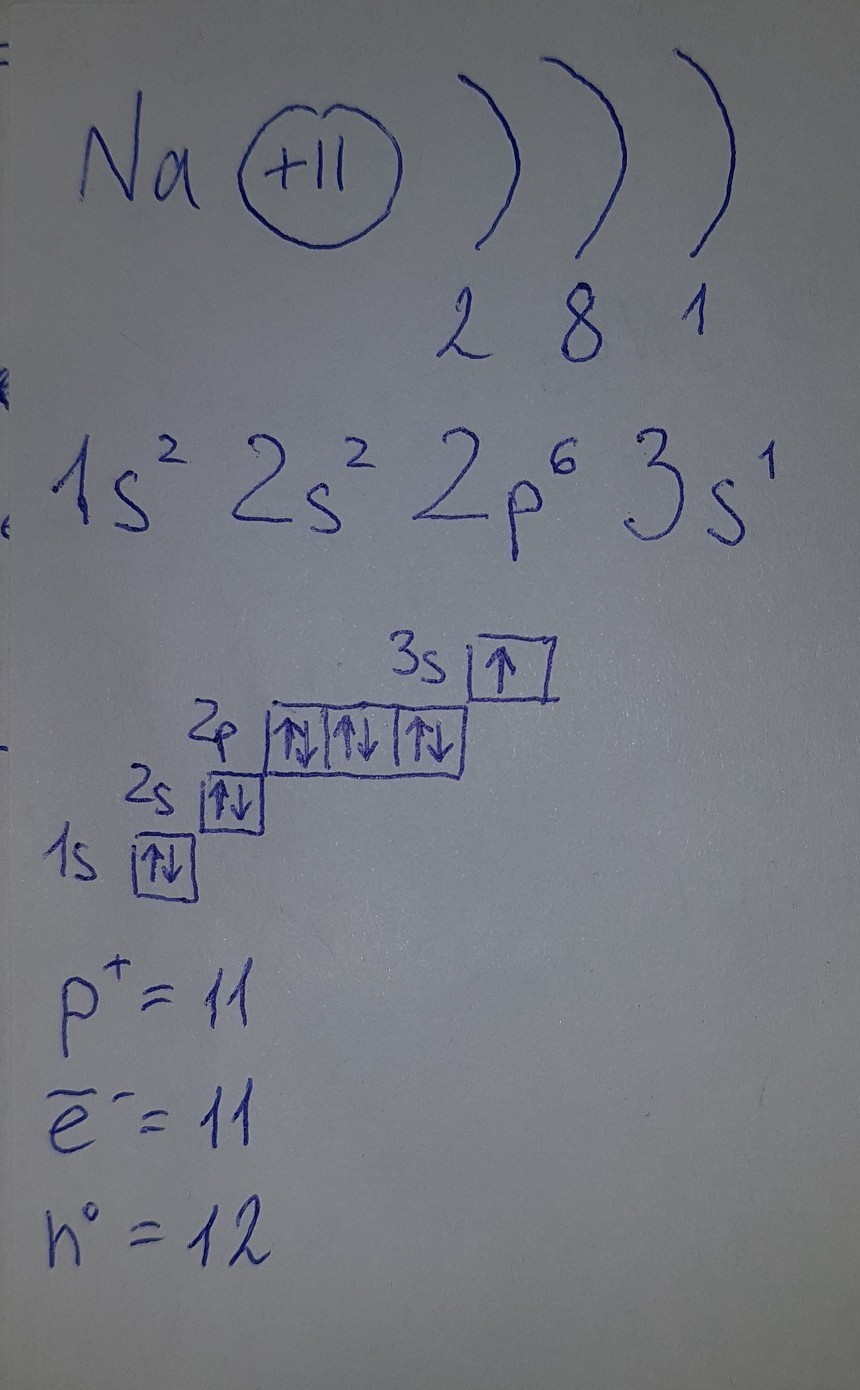 Na +11 ) ) )
2 8 1
1s² 2s² 2p⁶ 3s¹
3s ↑
2p ↑↓ ↑↓ ↑↓
2s ↑↓
1s ↑↓
p⁺ = 11
e̅⁻ = 11
n⁰ = 12